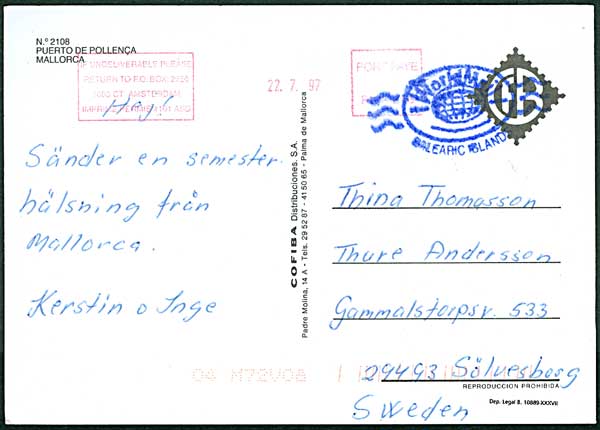 N.º 2108
PUERTO DE POLLENÇA
MALLORCA
IF UNDELIVERABLE PLEASE
RETURN TO P.O. BOX
AMSTERDAM
22. 7. 97
PORT PAYÉ
BALEARIC ISLAND
Hej!
Sänder en semester-
hälsning från
Mallorca.
Kerstin o Inge
COFIBA Distribuciones, S.A.
Padre Molina, 14 A - Tels. 29 52 87 - 41 50 65 - Palma de Mallorca
Thina Thomasson
Thure Andersson
Gammalstorpsv. 533
29493 Sölvesborg
Sweden
04 M72V08
REPRODUCCION PROHIBIDA
Dep. Legal B. 10889-XXXVII